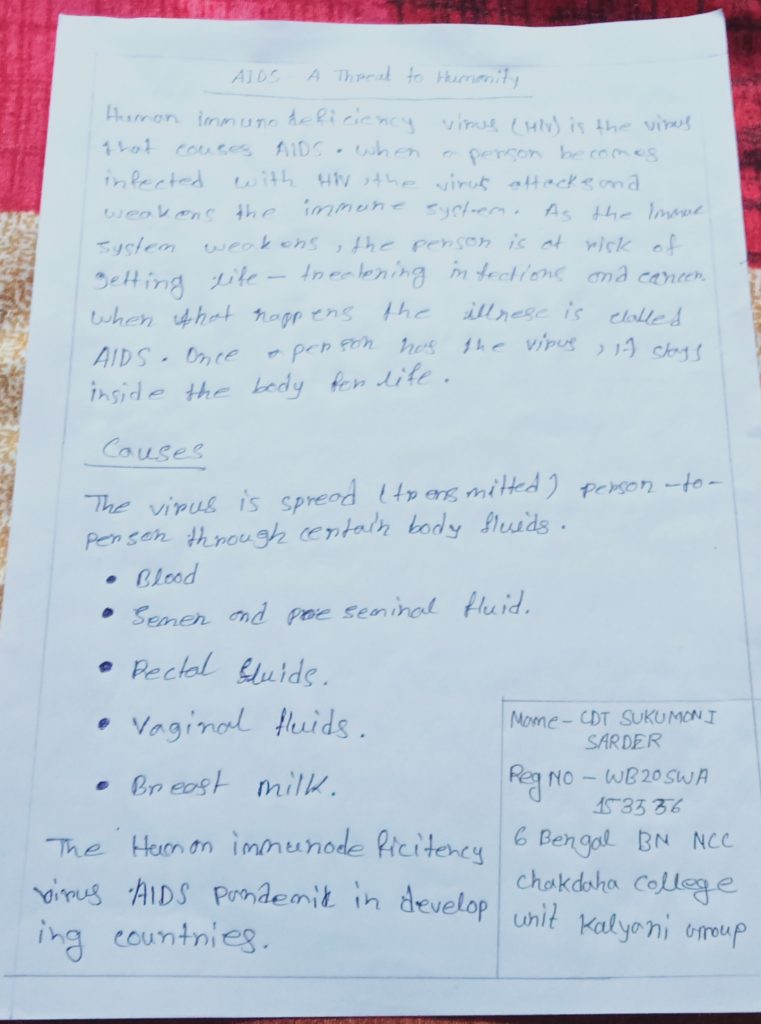 AIDS - A Threat to Humanity
Human immuno deficiency virus (HIV) is the virus
that causes AIDS. when a person becomes
infected with HIV, the virus attacks and
weakens the immune system. As the Immue
system weakens, the person is at risk of
getting life - threatening infections and cancer.
when that happens the illness is called
AIDS. Once a person has the virus, it stays
inside the body for life.
Causes
The virus is spread (transmitted) person-to-
person through certain body fluids.
• Blood
• Semen and pre seminal fluid.
• Rectal fluids.
• Vaginal fluids.
• Breast milk.
The Human immunode ficitency
virus AIDS Pandemik in develop
ing countries.
Name - CDT SUKUMONI
SARDER
Reg NO - WB20SWA
153336
6 Bengal BN NCC
Chakdaha College
unit Kalyani Group